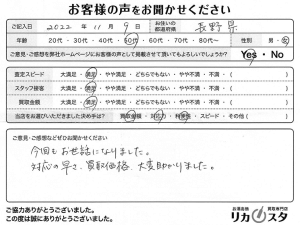 お客様の声をお聞かせください
ご記入日 2022年 11月 9日 お住いの都道府県 長野県
年齢 20代・30代・40代・50代・60代・70代・80代〜 性別 男・女
ご意見・ご感想を弊社ホームページにお客様の声として掲載させて頂いてもよろしいでしょうか? Yes・No
査定スピード 大満足・満足・やや満足・どちらでもない・やや不満・不満・( )
スタッフ接客 大満足・満足・やや満足・どちらでもない・やや不満・不満・( )
買取金額 大満足・満足・やや満足・どちらでもない・やや不満・不満・( )
当店をお選びいただきました決め手は? 買取金額・対応力・利便性・スピード・その他( )
ご意見・ご感想などぜひお聞かせください
今回もお世話になりました。
対応の早さ、買取価格、大変助かりました。
ご協力ありがとうございました。
この度は誠にありがとうございました。
お酒高価買取専門店
リカスタ